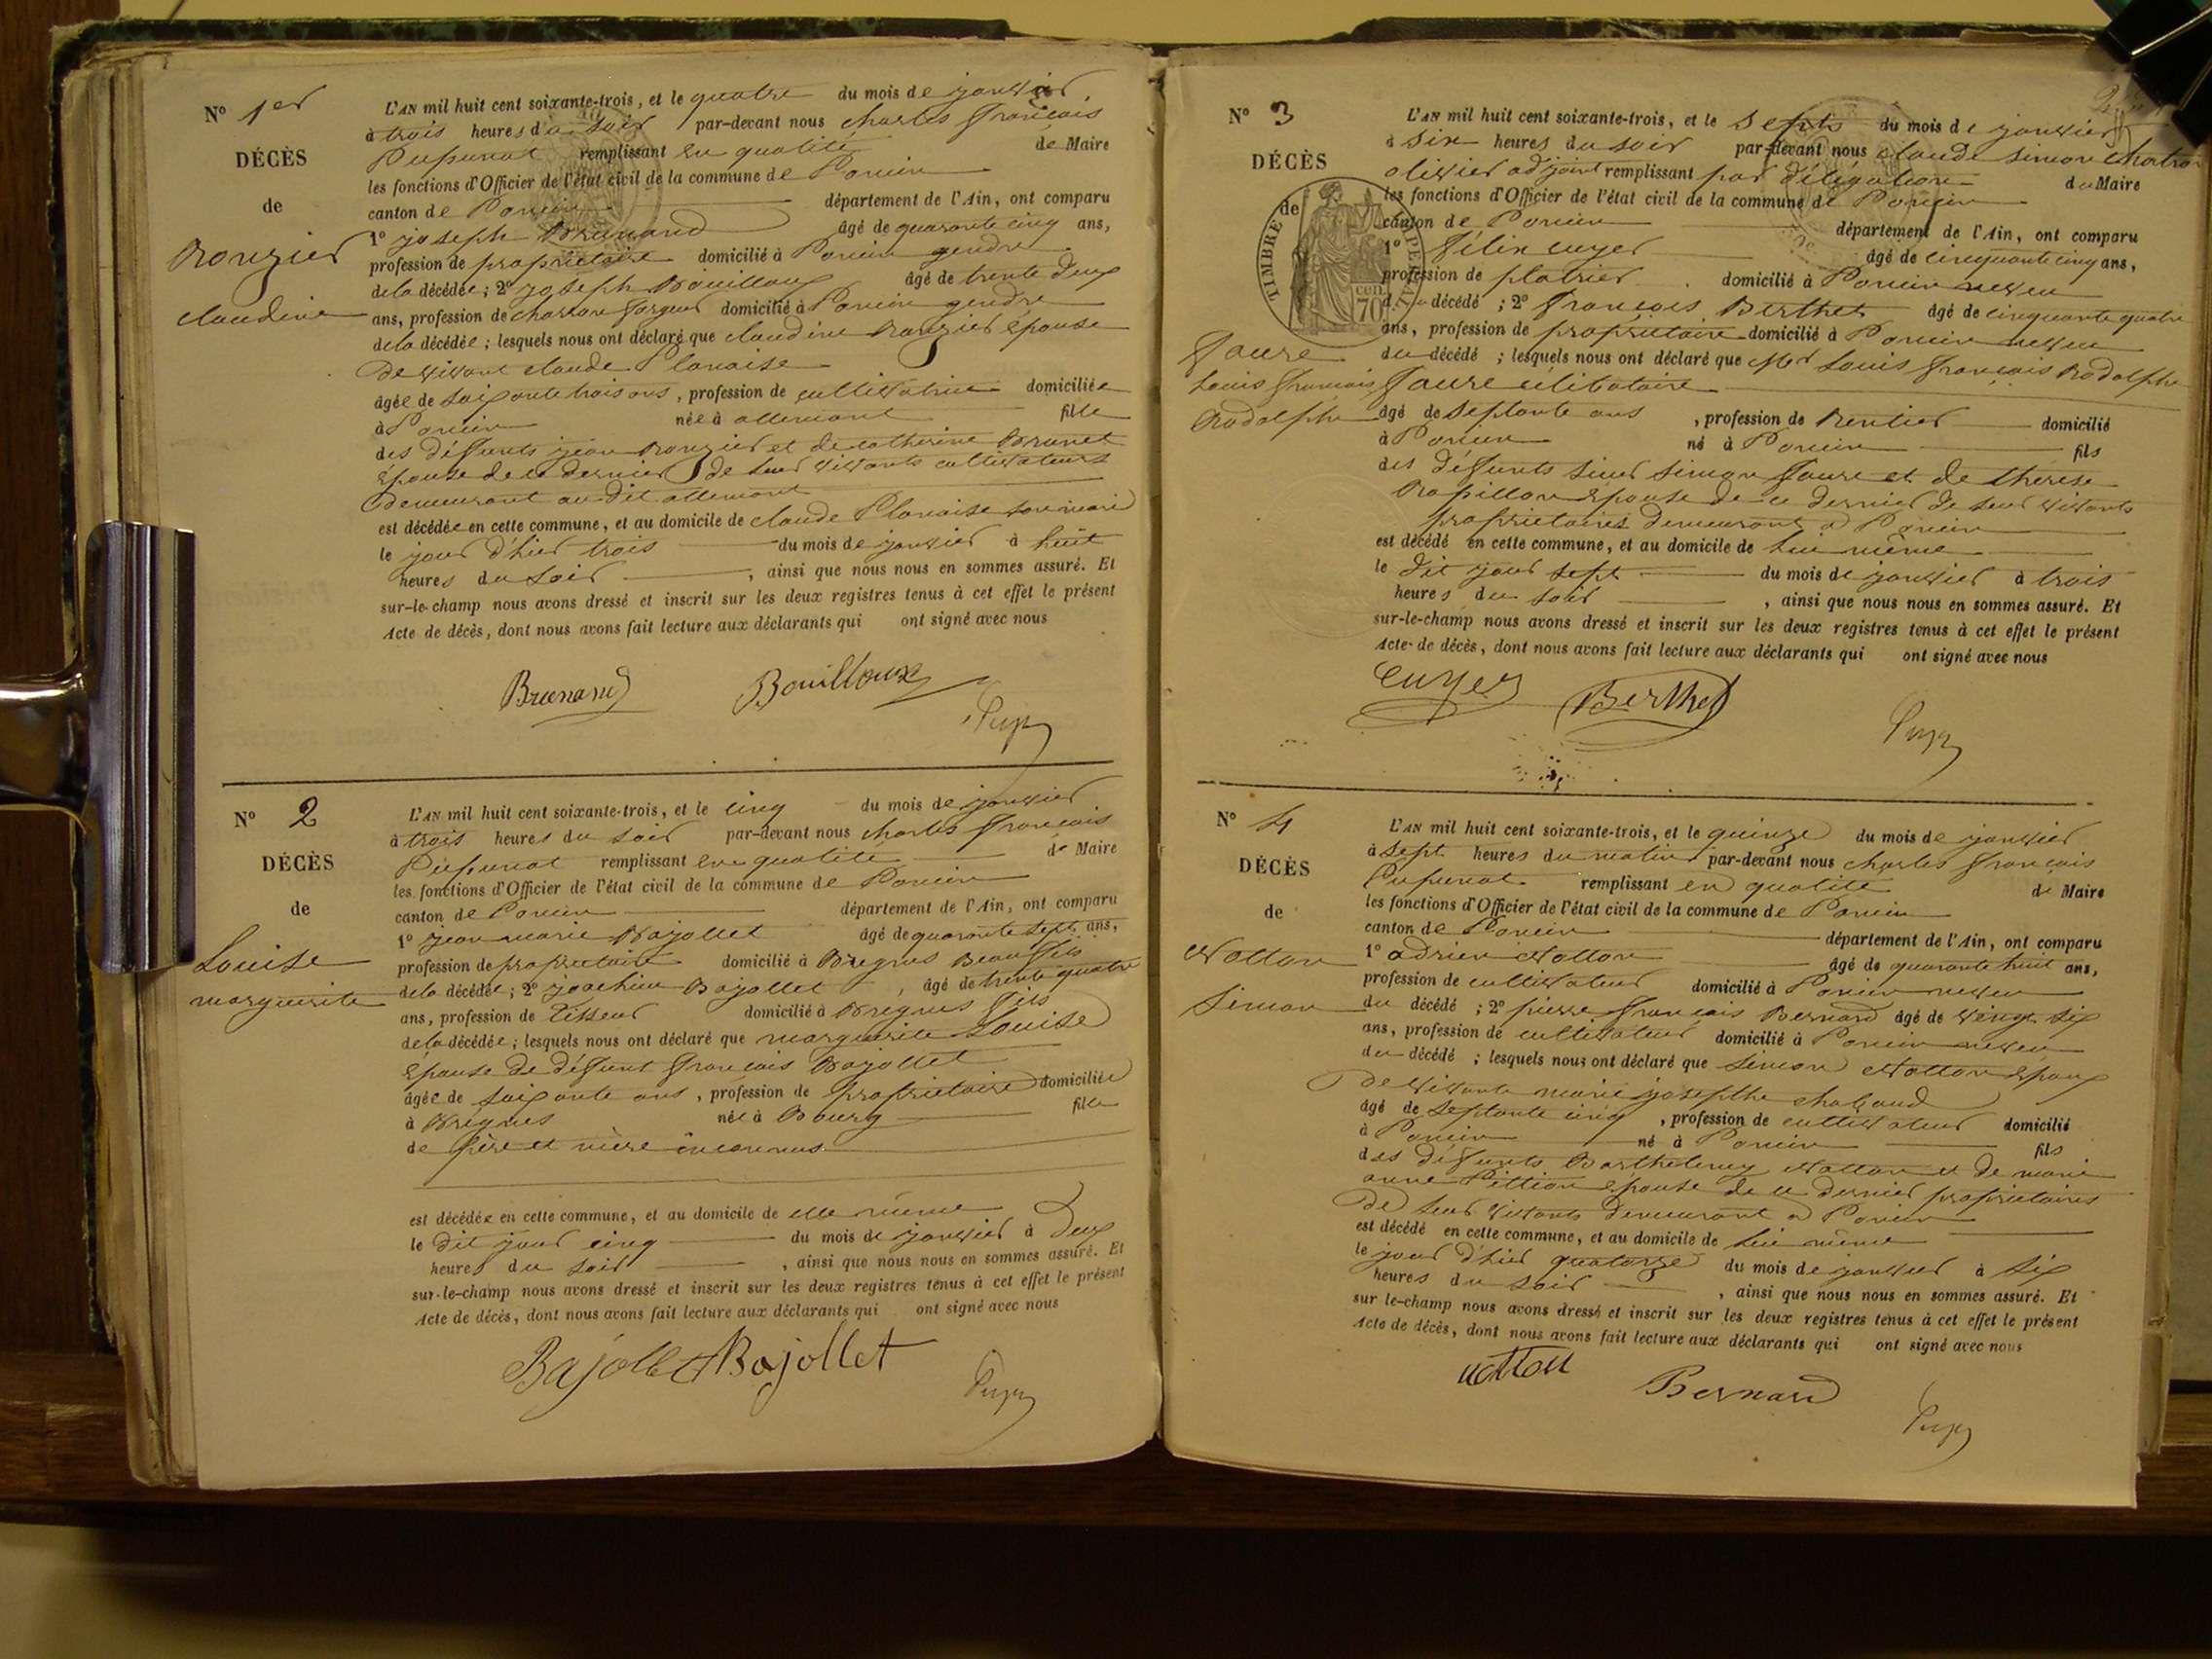 No 1er
DÉCÈS
de
Ronzier
claudine
L'AN mil huit cent soixante-trois, et le quatre du mois de janvier
à trois heures du soir par-devant nous charles françois
Pupunat remplissant en qualité de Maire
les fonctions d'Officier de l'état civil de la commune de Poncin
canton de Poncin département de l'Ain, ont comparu
1o joseph Brunand âgé de quarante cinq ans,
profession de propriétaire domicilié à Poncin gendre
de la décédée ; 2o joseph Bouilloux âgé de trente deux
ans, profession de charron forgeur domicilié à Poncin gendre
de la décédée ; lesquels nous ont déclaré que claudine Ronzier épouse
de vivant claude Planaise
âgée de soixante trois ans, profession de cultivatrice domiciliée
à Poncin née à allement fille
des défunts jean Ronzier et de catherine Brunet
épouse de ce dernier de leur vivants cultivateurs
demeurant au dit allement
est décédée en cette commune, et au domicile de claude Planaise son mari
le jour d'hier trois du mois de janvier à huit
heures du soir, ainsi que nous nous en sommes assuré. Et
sur-le-champ nous avons dressé et inscrit sur les deux registres tenus à cet effet le présent
Acte de décès, dont nous avons fait lecture aux déclarants qui ont signé avec nous
Brunand Bouilloux
No 2
DÉCÈS
de
Louise
marguerite
L'AN mil huit cent soixante-trois, et le cinq du mois de janvier
à trois heures du soir par-devant nous charles françois
Pupunat remplissant en qualité de Maire
les fonctions d'Officier de l'état civil de la commune de Poncin
canton de Poncin département de l'Ain, ont comparu
1o jean marie Bajollet âgé de quarante sept ans,
profession de propriétaire domicilié à Breignes Beau fils
de la décédée ; 2o joachim Bajollet, âgé de trente quatre
ans, profession de Tisseur domicilié à Breignes fils
de la décédée ; lesquels nous ont déclaré que marguerite Louise
épouse de défunt françois Bajollet
âgée de soixante ans, profession de propriétaire domiciliée
à Breignes née à Bourg fille
de père et mère inconnus
est décédée en cette commune, et au domicile de elle même
le dit jour cinq du mois de janvier à deux
heures du soir, ainsi que nous nous en sommes assuré. Et
sur-le-champ nous avons dressé et inscrit sur les deux registres tenus à cet effet le présent
Acte de décès, dont nous avons fait lecture aux déclarants qui ont signé avec nous
Bajollet Bajollet
No 3
DÉCÈS
de
TIMBRE IMPÉRIAL
70 cen.
Faure
Louis françois
Rodolphe
L'AN mil huit cent soixante-trois, et le Sept du mois de janvier
à six heures du soir par-devant nous claude simon
olivier adjoint remplissant par délégation du Maire
les fonctions d'Officier de l'état civil de la commune de Poncin
canton de Poncin département de l'Ain, ont comparu
1o félix cuyer âgé de cinquante cinq ans,
profession de platrier domicilié à Poncin neveu
du décédé ; 2o françois Berthet âgé de cinquante quatre
ans, profession de propriétaire domicilié à Poncin neveu
du décédé ; lesquels nous ont déclaré que Mr Louis françois Rodolphe
faure célibataire
âgé de septante ans, profession de Rentier domicilié
à Poncin né à Poncin fils
des défunts sieur simon faure et de therese
Rapillon épouse de ce dernier de leur vivants
propriétaires demeurant à Poncin
est décédé en cette commune, et au domicile de lui même
le dit jour sept du mois de janvier à trois
heures du soir, ainsi que nous nous en sommes assuré. Et
sur-le-champ nous avons dressé et inscrit sur les deux registres tenus à cet effet le présent
Acte de décès, dont nous avons fait lecture aux déclarants qui ont signé avec nous
Cuyer Berthet
No 4
DÉCÈS
de
Notton
Simon
L'AN mil huit cent soixante-trois, et le quinze du mois de janvier
à sept heures du matin par-devant nous charles françois
Pupunat remplissant en qualité de Maire
les fonctions d'Officier de l'état civil de la commune de Poncin
canton de Poncin département de l'Ain, ont comparu
1o adrien Notton âgé de quarante huit ans,
profession de cultivateur domicilié à Poncin neveu
du décédé ; 2o pierre françois Bernard âgé de vingt six
ans, profession de cultivateur domicilié à Poncin neveu
du décédé ; lesquels nous ont déclaré que simon Notton époux
de vivante marie josephe
âgé de septante cinq, profession de cultivateur domicilié
à Poncin né à Poncin fils
des défunts Barthelemy Notton et de marie
anne Pittion épouse de ce dernier propriétaires
de leur vivants demeurant à Poncin
est décédé en cette commune, et au domicile de lui même
le jour d'hier quatorze du mois de janvier à six
heures du soir, ainsi que nous nous en sommes assuré. Et
sur le-champ nous avons dressé et inscrit sur les deux registres tenus à cet effet le présent
Acte de décès, dont nous avons fait lecture aux déclarants qui ont signé avec nous
notton Bernard